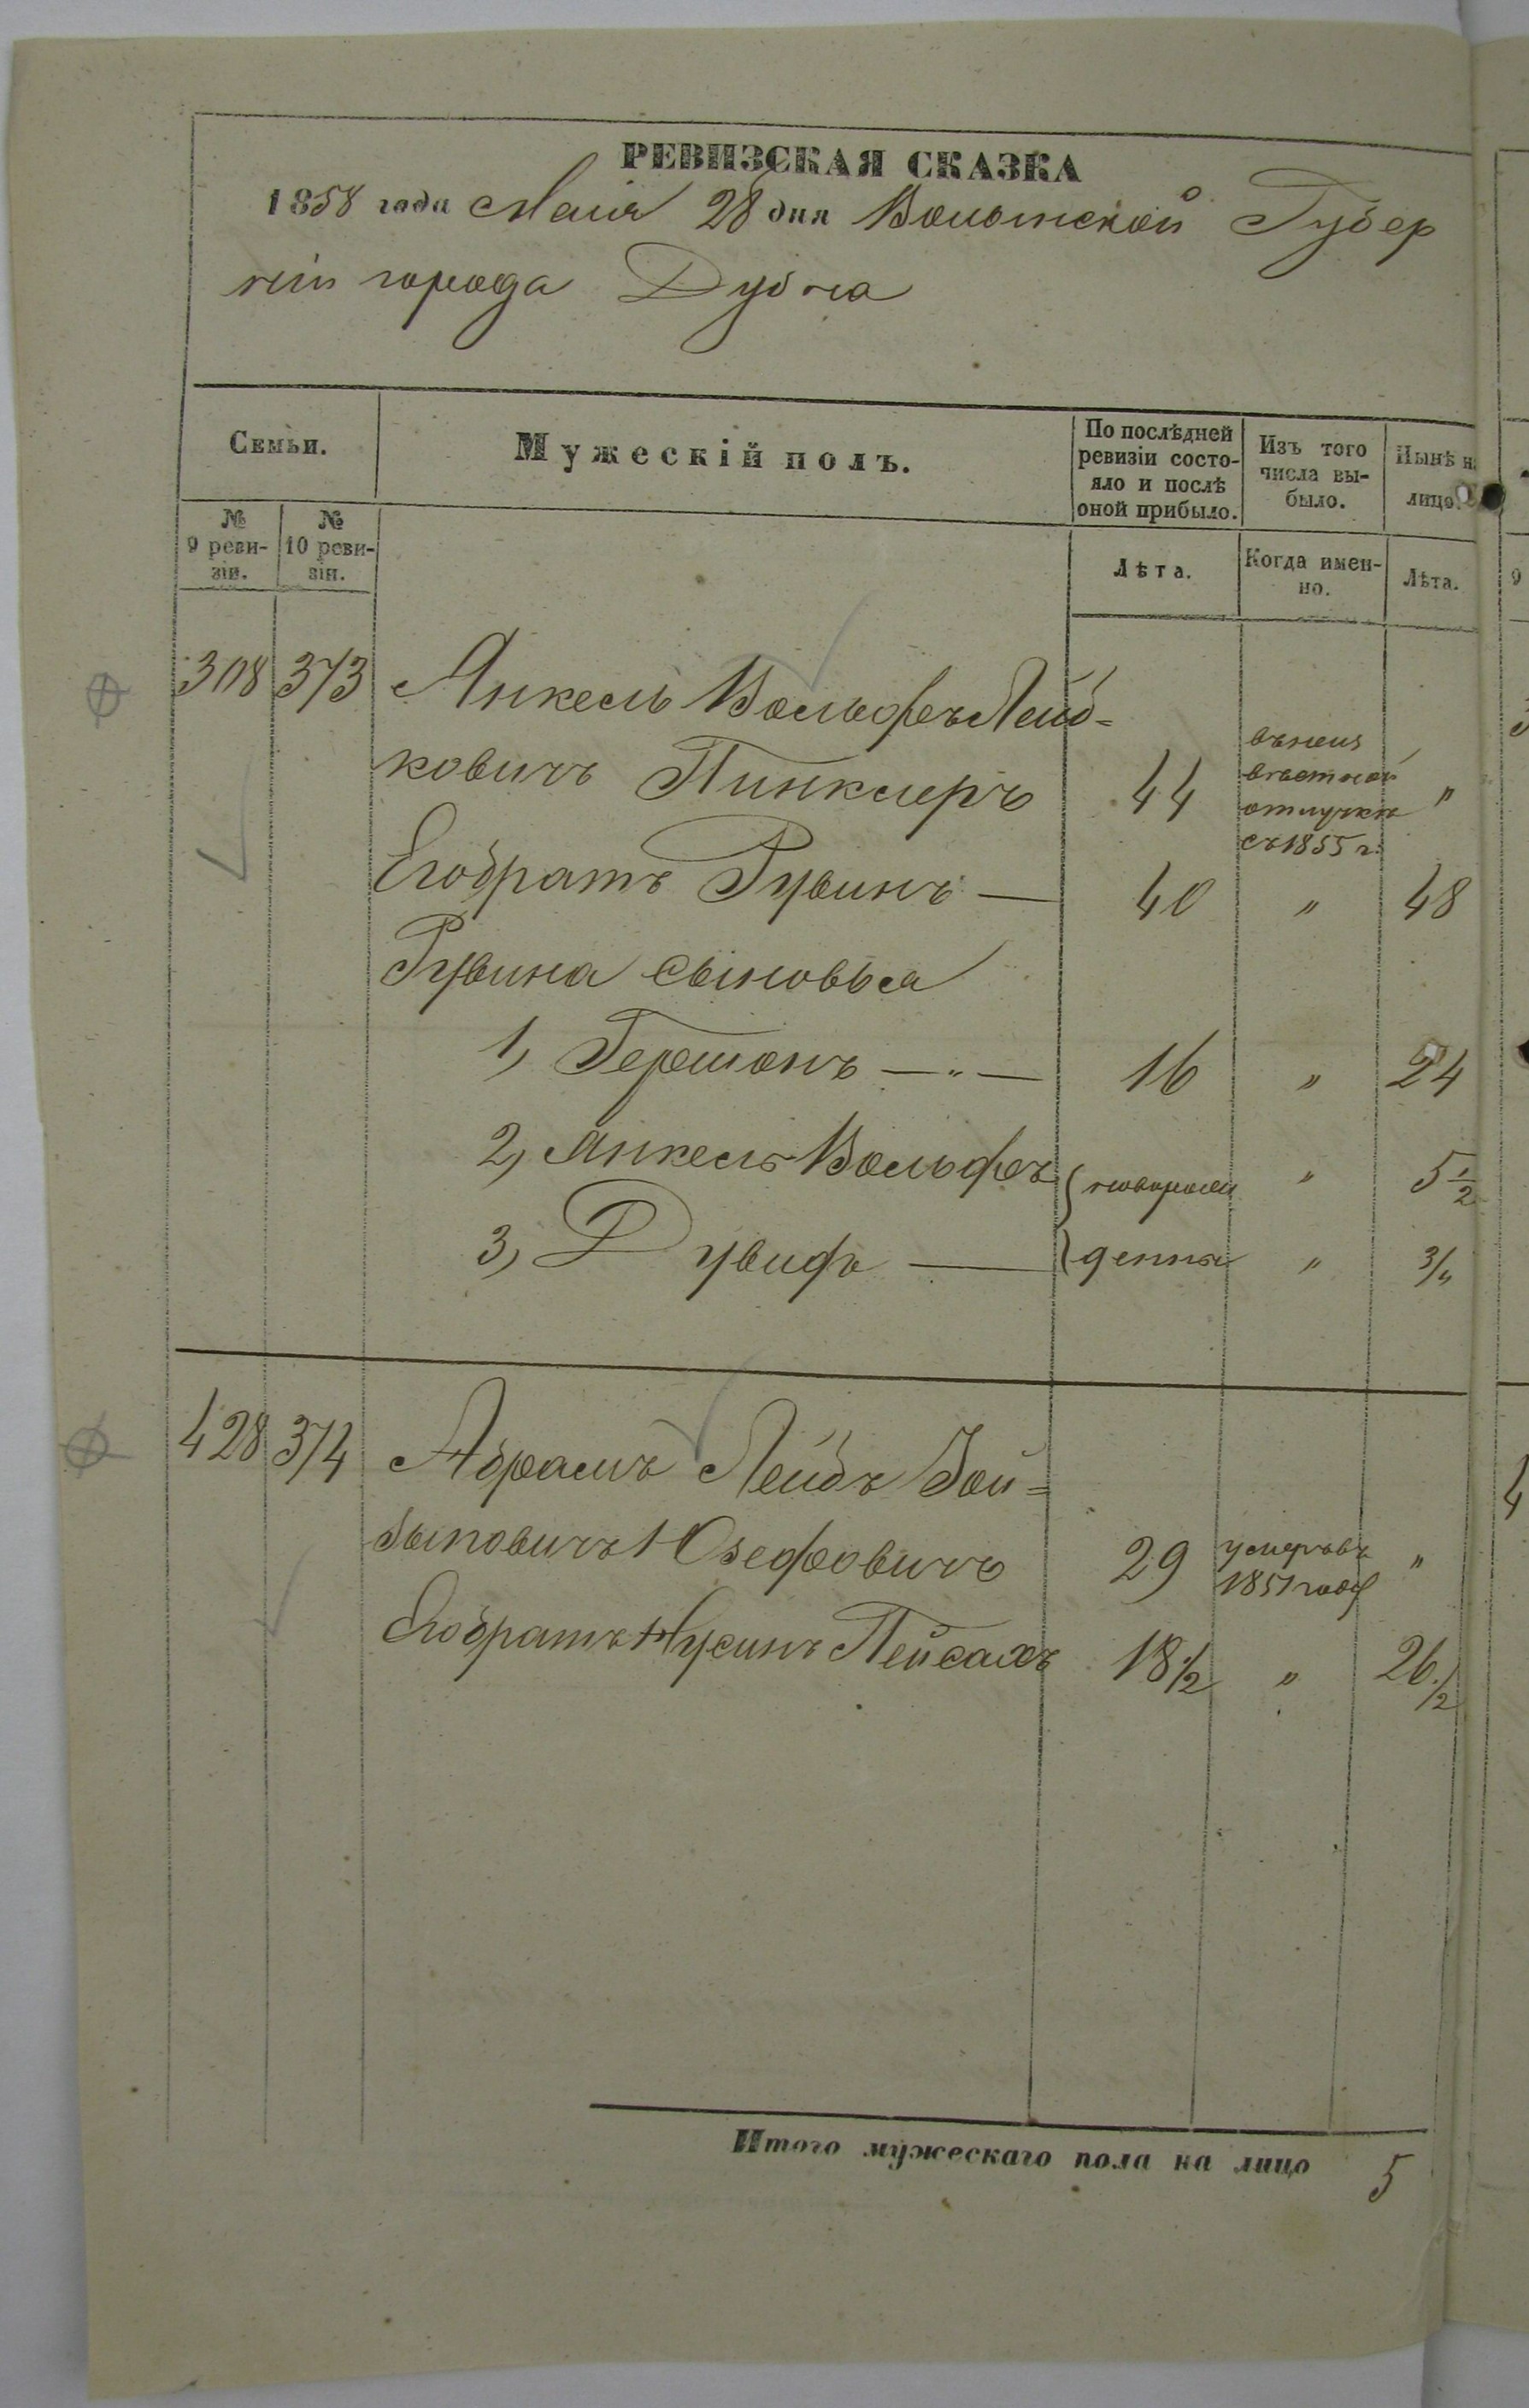 РЕВИЗСКАЯ СКАЗКА
1858 года Маія 28 дня Волынской Губер
ніи города Дубна
Семьи.
Мужескій полъ.
По послѣдней ревизіи состо-
яло и послѣ оной прибыло.
Изъ того числа вы-
было.
Нынѣ на лицо.
№ 9 реви-
зіи.
№ 10 реви-
зіи.
Лѣта.
Когда имен-
но.
Лѣта.
308 373 Янкель Вольфъ Лейб=
ковичъ Пинклеръ 44 въ неиз
вѣстной
отлучкѣ "
съ 1855 г.
Его братъ Рувинъ — 40 " 48
Рувина сыновья
1, Гершонъ — " — 16 " 24
2, Янкель Вольфъ новорож " 5 1/2
3, Дувидъ — денны " 3/"
428 374 Абрамъ Лейбъ Зой=
быловичъ Юзефовичъ 29 умеръ въ "
1851 году
Его братъ Нусинъ Пейсахъ 18 1/2 " 26 1/2
Итого мужескаго пола на лицо 5